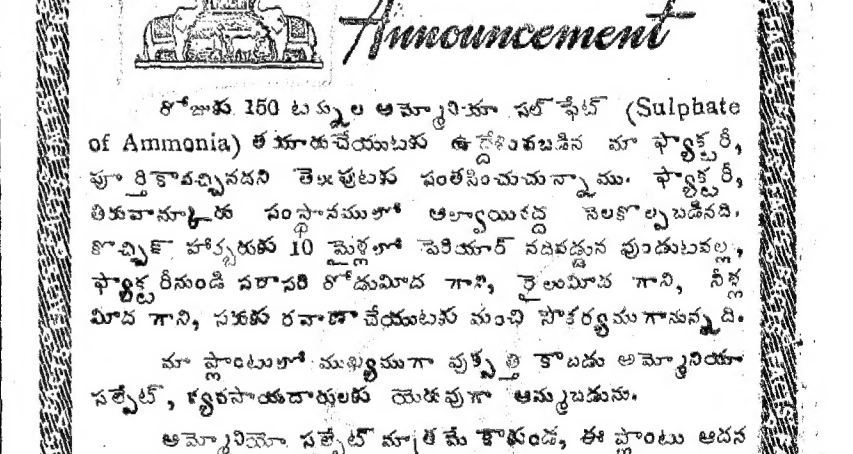 Announcement
రోజుకు 150 టన్నుల అమ్మోనియా సల్ ఫేట్ (Sulphate
of Ammonia) తయారుచేయుటకు ఉద్దేశింపబడిన మా ఫ్యాక్టరీ,
పూర్తికావచ్చినదని తెలుపుటకు సంతసించుచున్నాము. ఫ్యాక్టరీ,
తిరువాన్కూరు సంస్థానములో ఆల్వాయివద్ద నెలకొల్పబడినది.
కొచ్చిన్ హార్బరుకు 10 మైళ్లలో పెరియార్ నదివడ్డున వుండుటవల్ల,
ఫ్యాక్టరీనుండి సరాసరి రోడుమీద గాని, రైలుమీద గాని, నీళ్ల
మీద గాని, సరుకు రవాణా చేయుటకు మంచి సౌకర్యముగానున్నది.
మా ప్లాంటులో ముఖ్యముగా వుత్పత్తి కాబడు అమ్మోనియా
సల్ఫేట్, వ్యవసాయదారులకు యెరువుగా అమ్మబడును.
అమ్మోనియా సల్ఫేట్ మాత్రమే కాకుండ, ఈ ప్లాంటు అదన